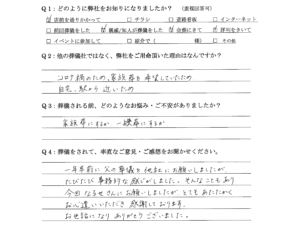 Q1：どのように弊社をお知りになりましたか？（複数回答可）
☑店前を通りかかって □チラシ □道路看板 □インターネット
□前回葬儀をした ☑親戚/知人が葬儀をした ☑会館にきて ☑評判をきいて
□イベントに参加して □紹介で（ 様） □その他
Q2：他の葬儀社ではなく、弊社をご用命頂いた理由はなんですか？
コロナ禍のため、家族葬を希望していたため
自宅、駅から近いため
Q3：葬儀される前、どのようなお悩み・ご不安がありましたか？
家族葬にするか一般葬にするか
Q4：葬儀をされて、率直なご意見・ご感想をお聞かせください。
一年半前に父の葬儀を他社にお願いしましたが、
たびたび事務的な感じがしました。そんなこともあり
今回なるせさんにお願いしましたが、とてもあたたかく
お心遣いいただき感謝しております。
お世話になりありがとうございました。